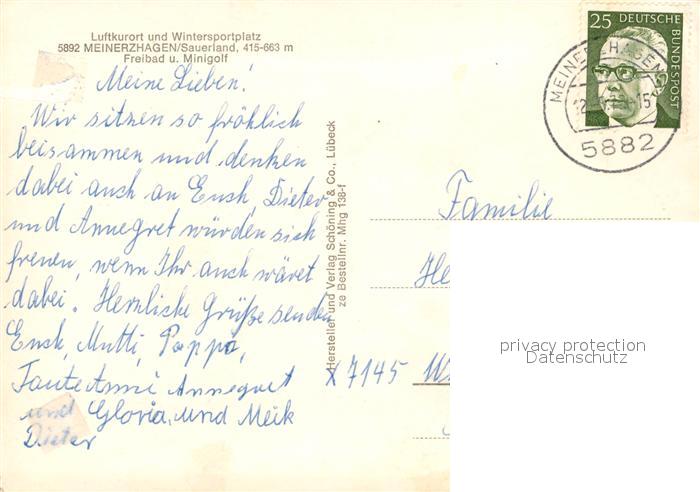 Luftkurort und Wintersportplatz
5892 MEINERZHAGEN/Sauerland, 415-663 m
Freibad u. Minigolf
Meine Lieben!
Wir sitzen so fröhlich
beisammen und denken
dabei auch an Euch, Dieter
und Annegret würden sich
freuen, wenn Ihr auch wäret
dabei. Herzliche Grüße senden
Euch, Mutti, Pappi,
Tante Anni Annegret
und Gloria, und Meik
Dieter
Hersteller und Verlag Schöning & Co., Lübeck
ze Bestellnr. Mhg 138-f
25 DEUTSCHE
BUNDESPOST
MEINERZHAGEN
5882
Familie
He
x 7145 W
privacy protection
Datenschutz